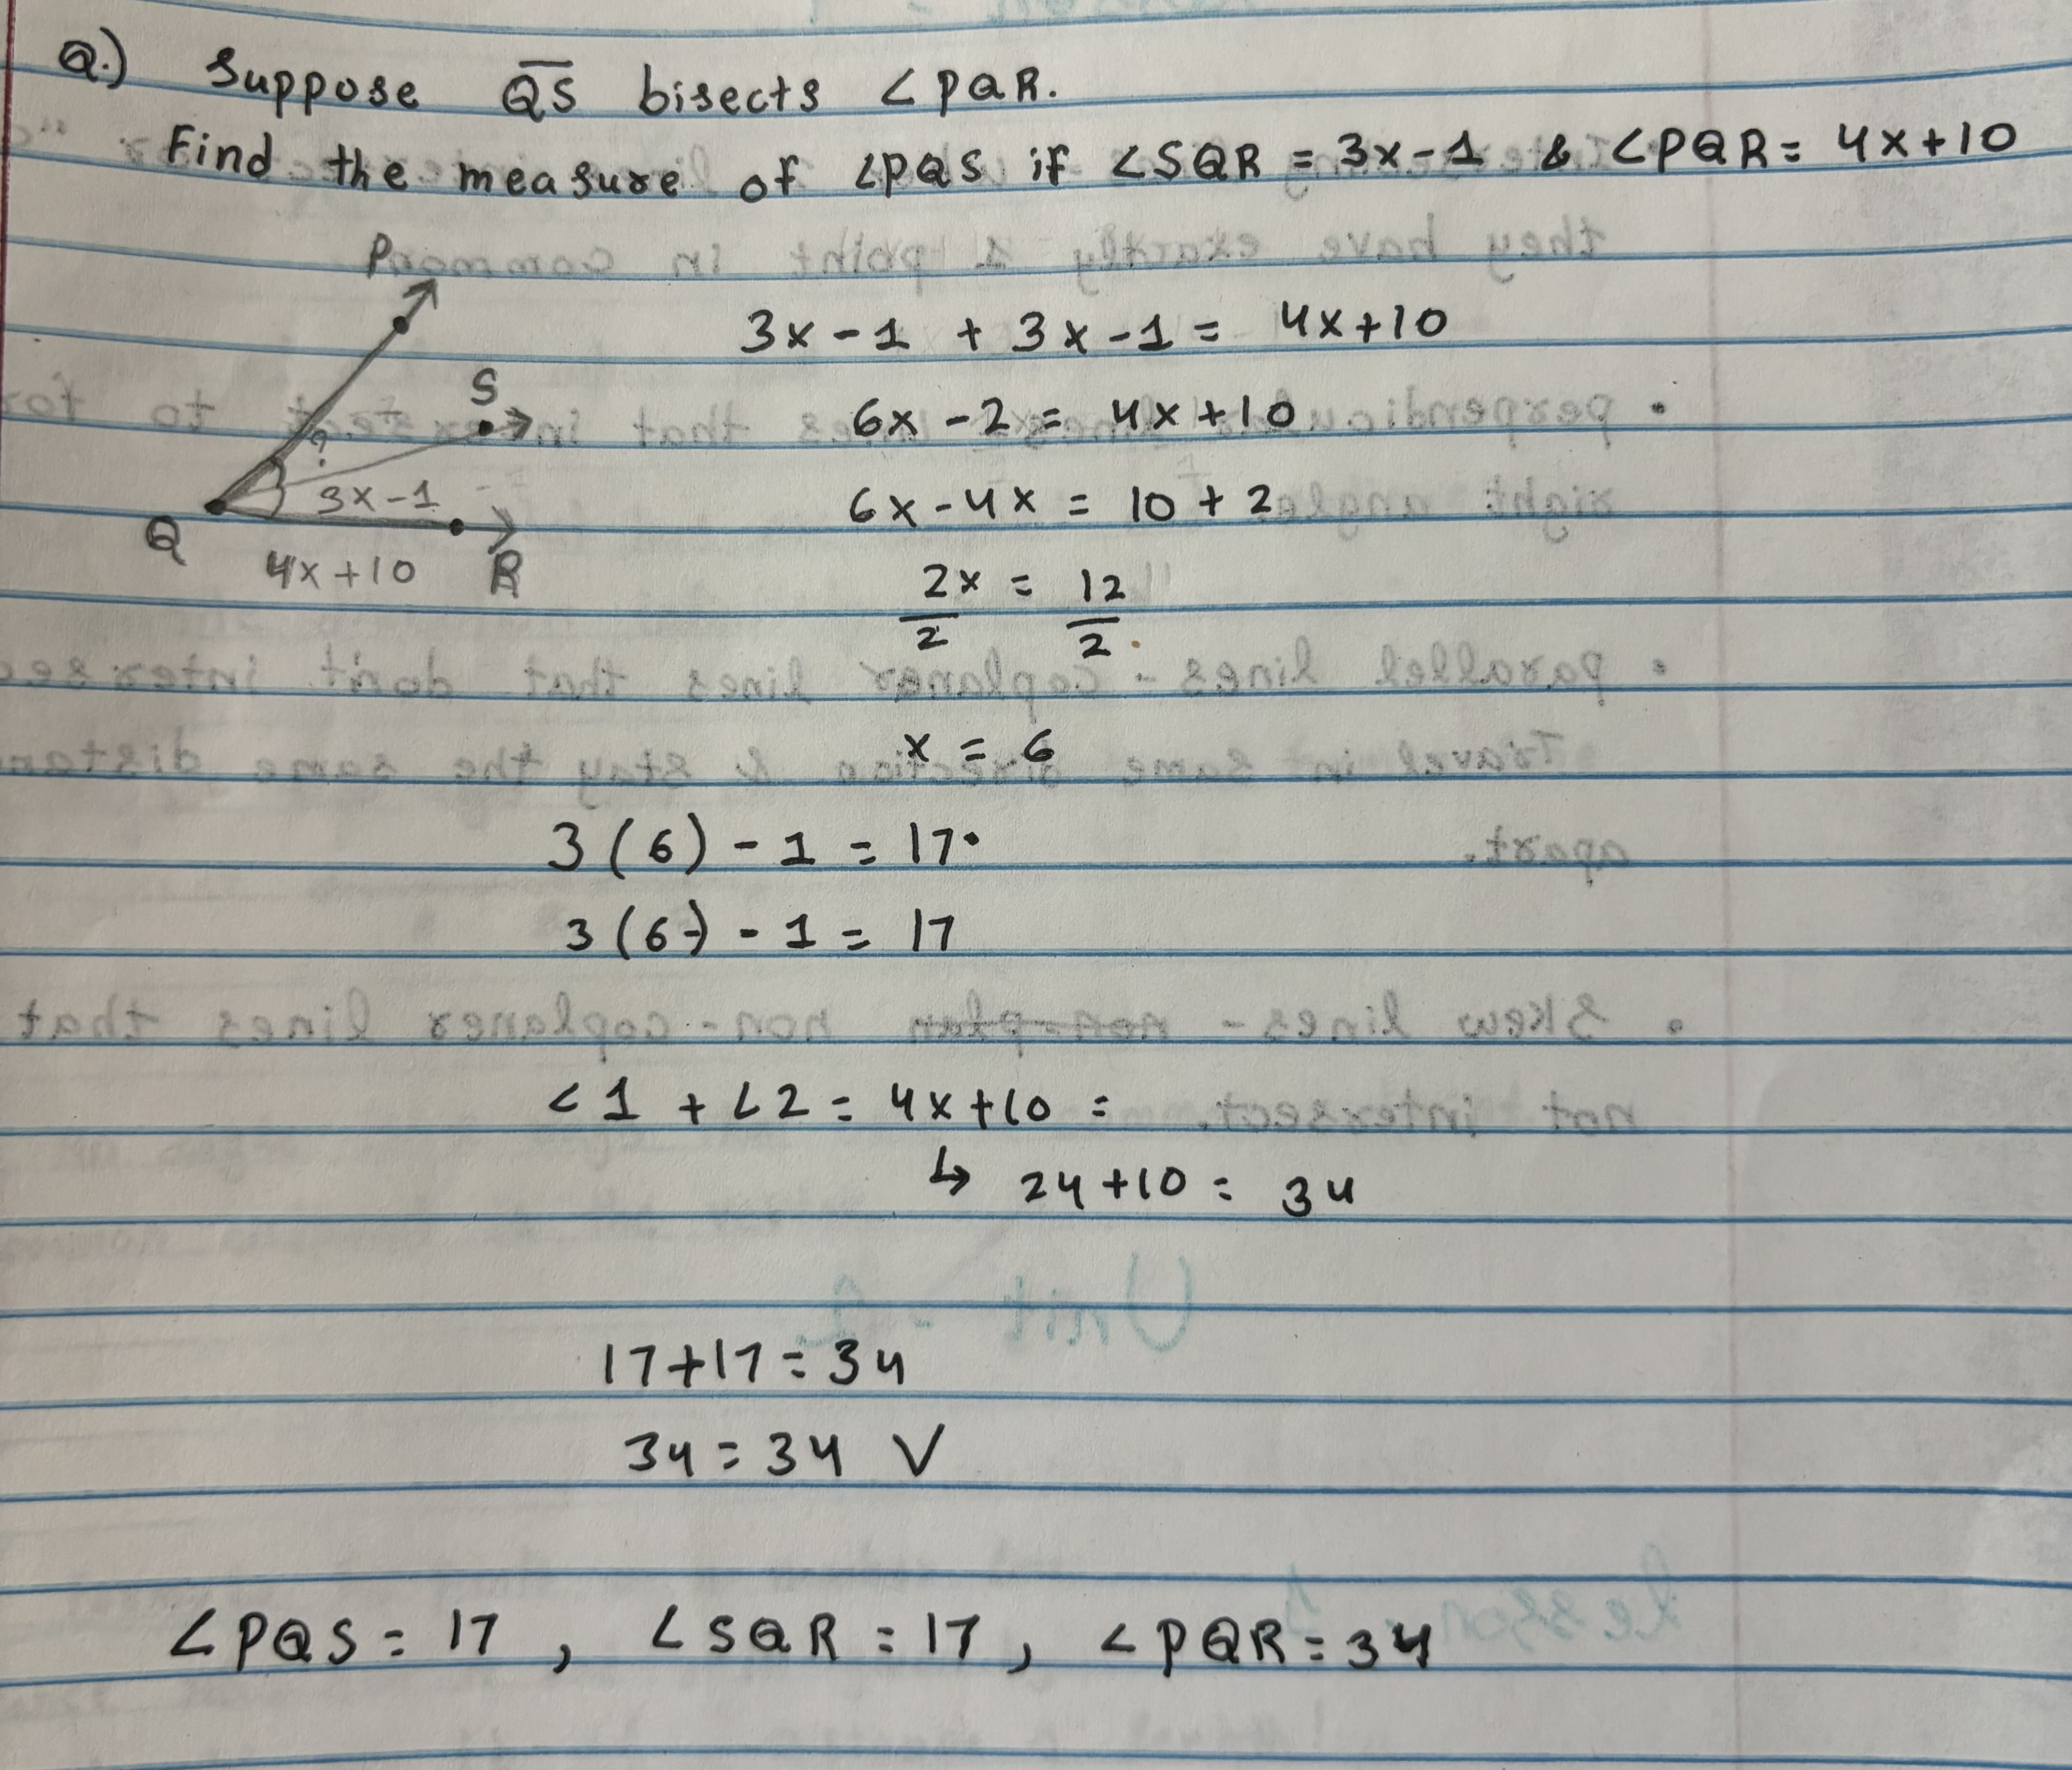 Q.) Suppose Q̅S̅ bisects ∠PQR.
Find the measure of ∠PQS if ∠SQR = 3x-1 & ∠PQR = 4x+10
P
S
?
3x-1
Q
4x+10 R
3x-1 + 3x-1 = 4x+10
6x-2 = 4x+10
6x-4x = 10+2
2x = 12
2 2
x = 6
3(6)-1 = 17
3(6)-1 = 17
∠1 + ∠2 = 4x+10 =
↳ 24+10 = 34
17+17 = 34
34 = 34 √
∠PQS = 17, ∠SQR = 17, ∠PQR = 34